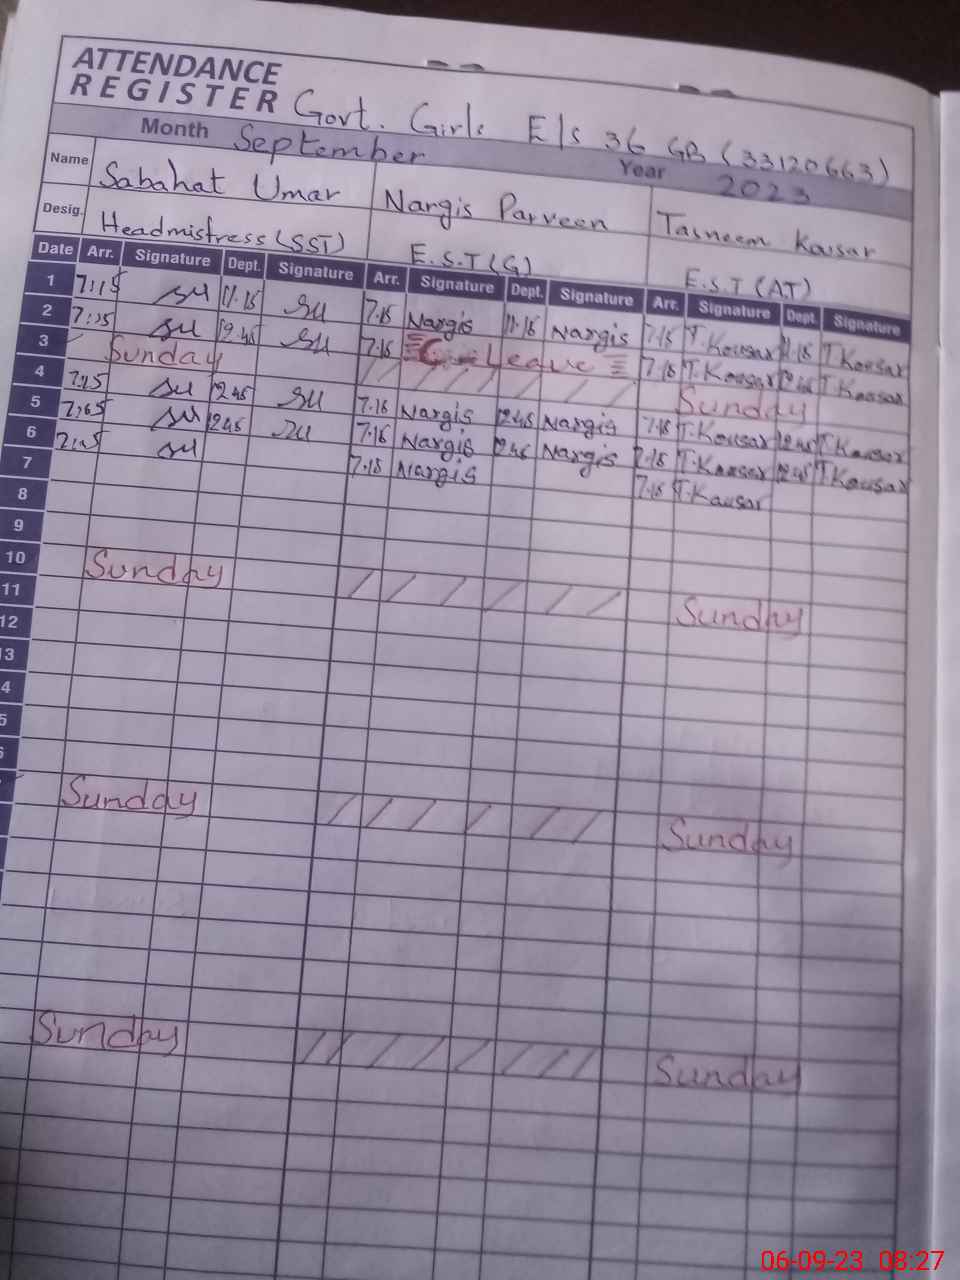 ATTENDANCE
REGISTER Govt. Girls E/S 36 GB (33120663)
Month September Year 2023
Name Sabahat Umar Nargis Parveen Tasneem Kausar
Desig. Headmistress (SST) E.S.T (G) E.S.T (AT)
Date Arr. Signature Dept. Signature Arr. Signature Dept. Signature Arr. Signature Dept. Signature
1 7:15 SU 11.15 SU 7.15 Nargis 11.15 Nargis 7.15 T.Kousar 11.15 T.Kousar
2 7:15 SU 12.45 SU 7.15 Leave 7.15 T.Kousar T.Kousar
3 Sunday Sunday
4 7:15 SU 1245 SU 7.15 Nargis 1245 Nargis 7.15 T.Kousar 1245 T.Kousar
5 SU 1245 SU 7.15 Nargis 1245 Nargis 7.15 T.Kousar 1245 T.Kousar
6 SU 7.15 Nargis 7.15 T.Kausar
7
8
9
10 Sunday Sunday
11
12
13
4
5
Sunday Sunday
Sunday Sunday
06-09-23 08:27